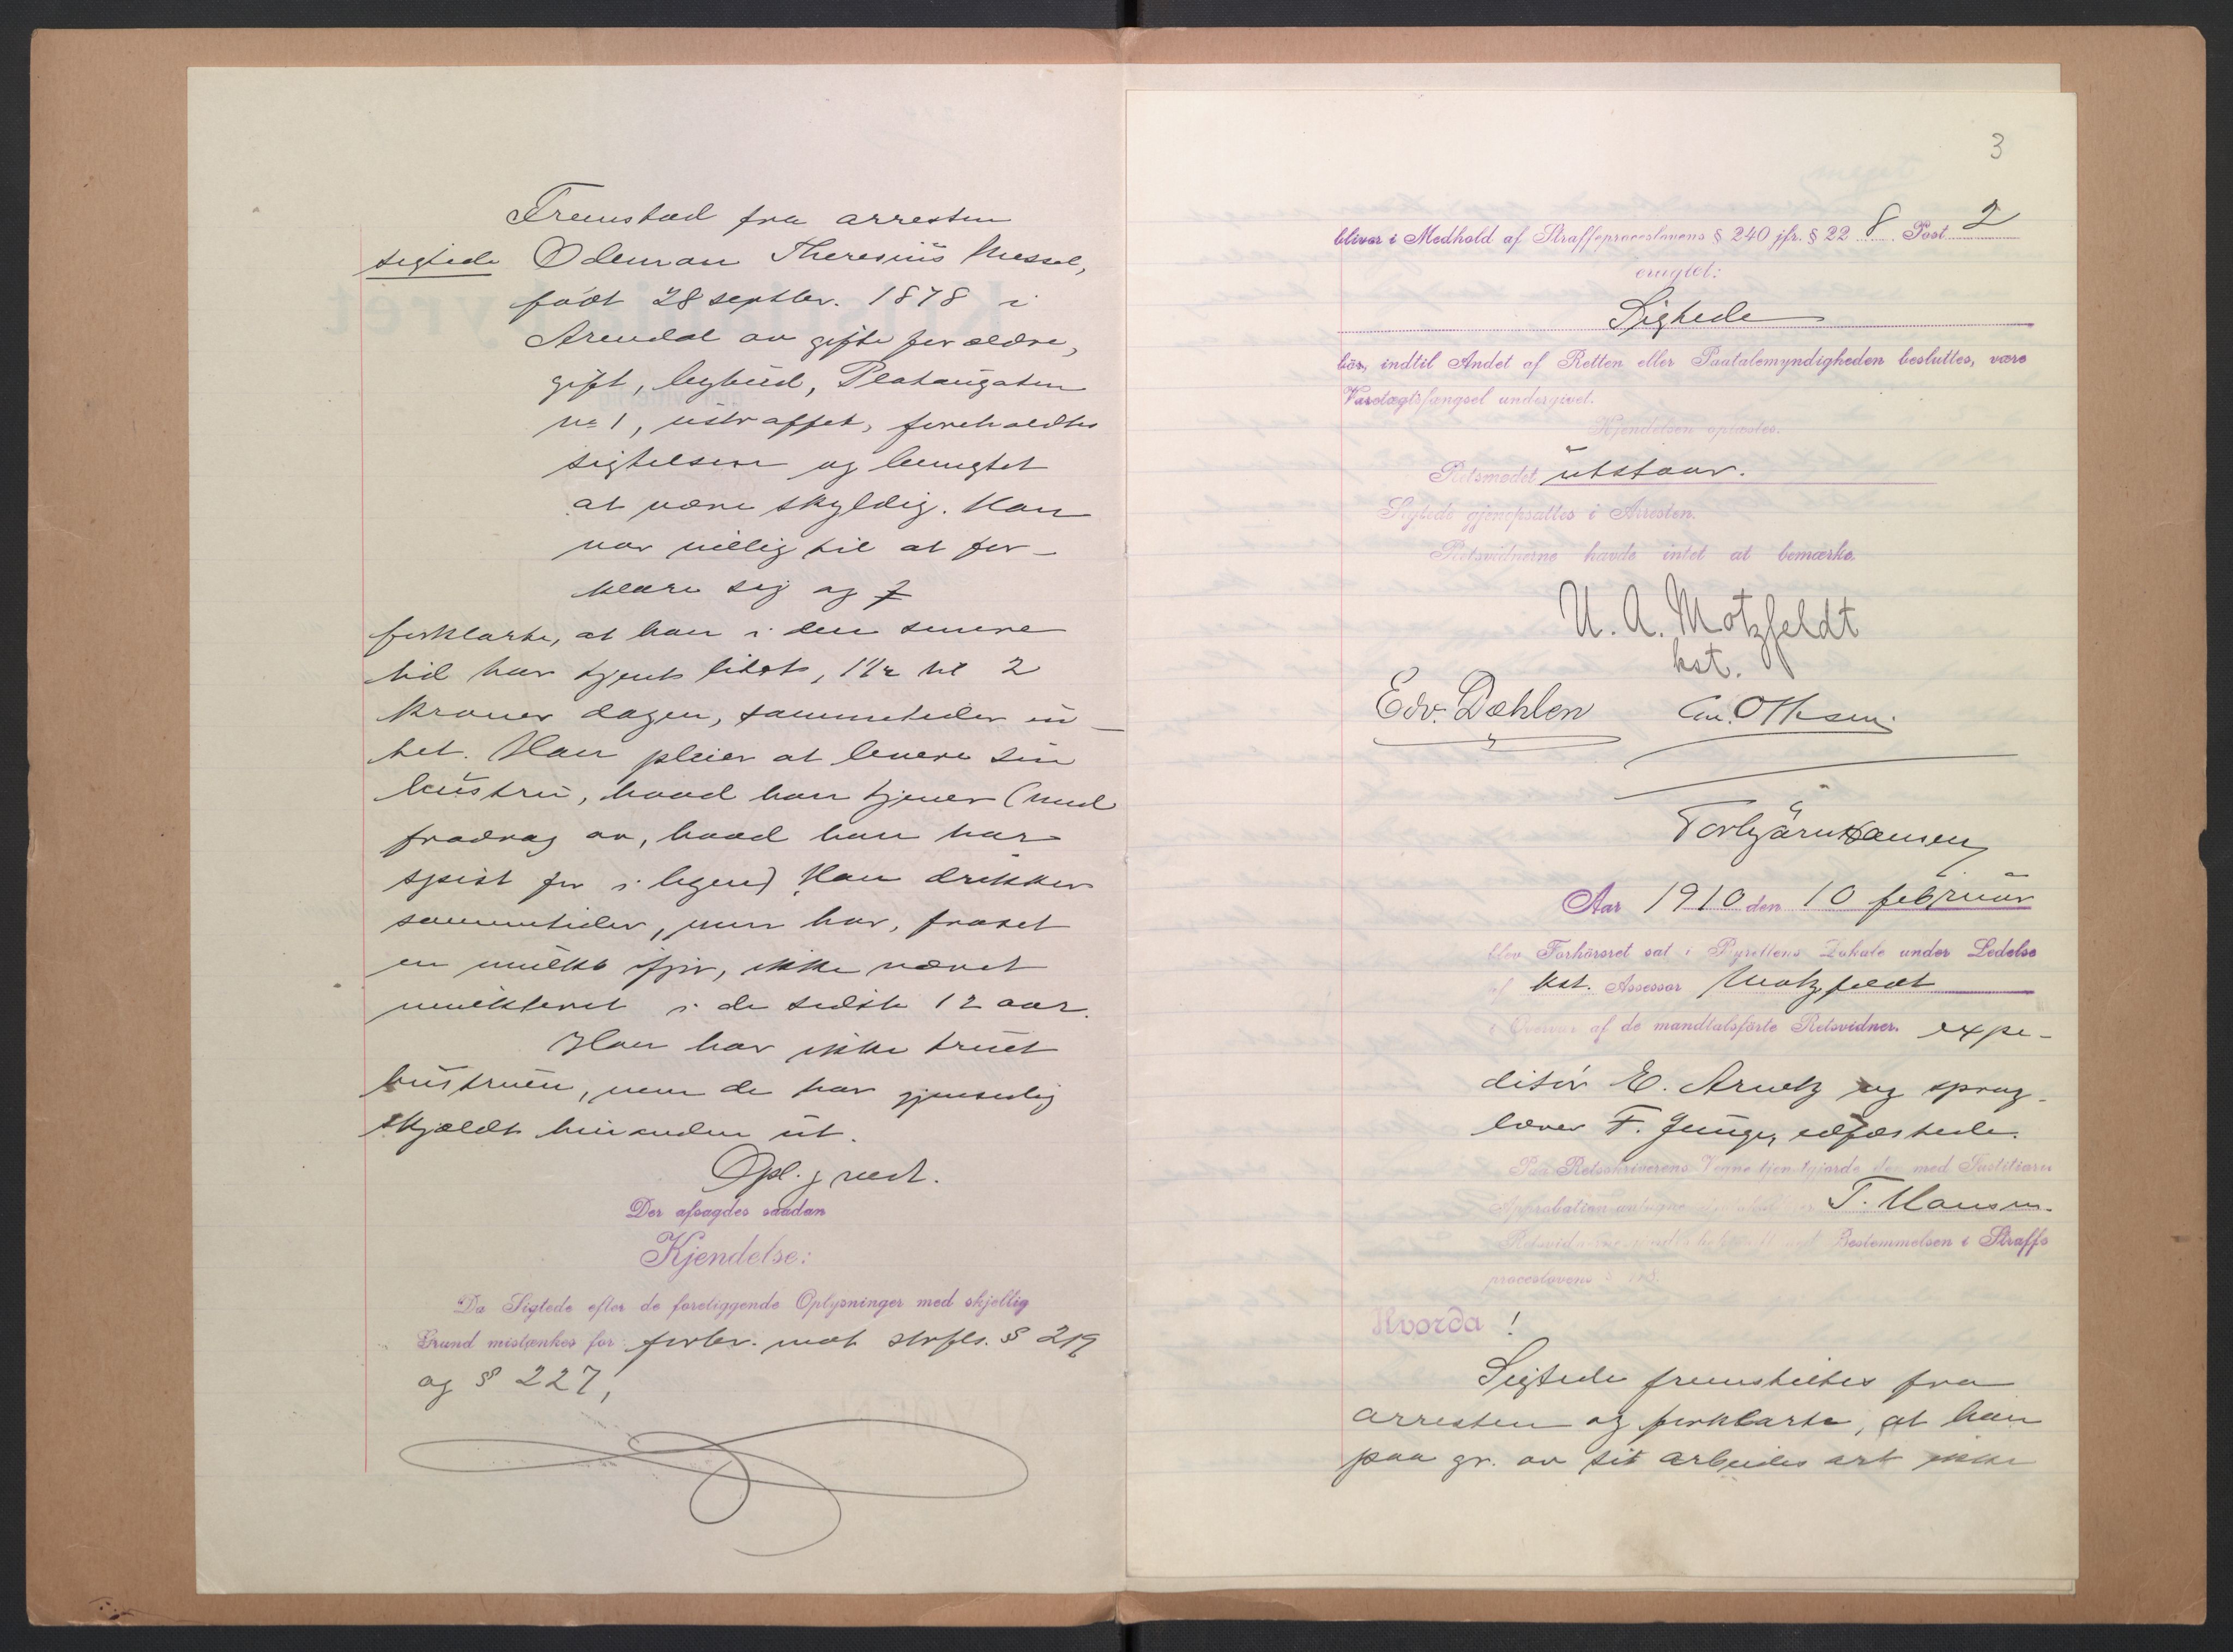 Fremstod fra arresten
sigtede Odeman Theresius Messel,
født 28 septbr. 1878 i
Arendal av gifte forældre,
gift, bybud, Platougaten
no 1, ustraffet, foreholdtes
sigtelsen og benegtet
at være skyldig. Han
var villig til at for-
klare sig og
forklarte, at han i den senere
tid har tjent litet, 1 1/2 til 2
kroner dagen, sommetider in-
tet. Han pleier at levere sin
hustru, hvad han tjener (med
fradrag av, hvad han har
spist for i byen) Han drikker
sommetider, men har, fraset
en mulkt ifjor, ikke været
mulkteret i de sidste 12 aar.
Han har ikke truet
hustruen, men de har gjensidig
skjældt hinanden ut.
Opl. g vedt.
Der afsagdes saadan
Kjendelse:
Da Sigtede efter de foreliggende Oplysninger med skjellig
Grund mistænkes for forbr. mot strfls. § 219
og § 227,
3
bliver i Medhold af Straffeproceslovens § 240 jfr. § 22 8 Post 2
eragtet:
Sigtede
bör, indtil Andet af Retten eller Paatalemyndigheden besluttes, være
Varetægtsfængsel undergivet.
Kjendelsen oplæstes.
Retsmødet utstaar.
Sigtede gjenopsattes i Arresten.
Retsvidnerne havde intet at bemærke.
U. A. Motzfeldt
kst.
Edv. Dæhlen Ottesen
Torbjørn Hansen
Aar 1910 den 10 februar
blev Forhörsret sat i Byrettens Lokale under Ledelse
af kst. Assessor Motzfeldt
i Overvær af de mandtalsförte Retsvidner. expe-
ditør E. Arnetz og sprog-
lærer F. Junge, edfæstede.
Paa Retsskriverens Vegne tjenstgjorde den med Justitiarii
Approbation antagne T. Hansen.
Retsvidnerne Bestemmelsen i Straffe
proceslovens §
Hvorda!
Sigtede fremstilles fra
arresten og forklarte, at han
paa gr. av sit arbeides art ikke